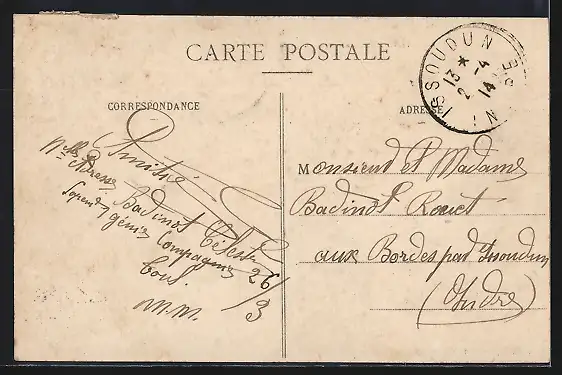 CARTE POSTALE
CORRESPONDANCE
ADRESSE
ISSOUDUN
13 *
2 - 4
14
Amitié
Badinot Célestin
génie
Compagnie 26/3
M.M.
Monsieur et Madame
Badinot Rouet
aux Bordes par Issoudun
(Indre)